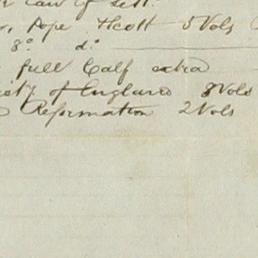 Law of Sett.
Pope Scott 5 Vols
8° d°
full Calf extra
iety of England 8 Vols
Reformation 2 Vols